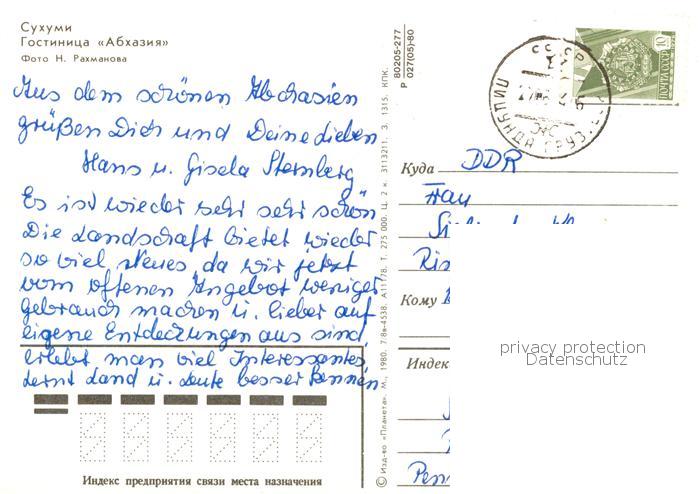 Сухуми
Гостиница «Абхазия»
Фото Н. Рахманова
Aus dem schönen Abchasien
grüßen Dich und Deine lieben
Hans u. Gisela Sternberg
Es ist wieder sehr sehr schön
Die Landschaft bietet wieder
so viel Neues, da wir jetzt
vom offenen Angebot weniger
gebrauch machen u. lieber auf
eigene Entdeckungen aus sind,
erlebt man viel Interessantes
lernt Land u. Leute besser kennen
Индекс предприятия связи места назначения
80205-277
Р 027(05)-80
© Изд-во «Планета». М., 1980. 7/8в-4538. А11178. Т. 275 000. Ц. 2 к. 3113211. З. 1315. КПК.
СССР
ПИЦУНДА ГРУЗ.
ПОЧТА СССР
10
Куда DDR
Frau
Кому
Индекс
privacy protection
Datenschutz